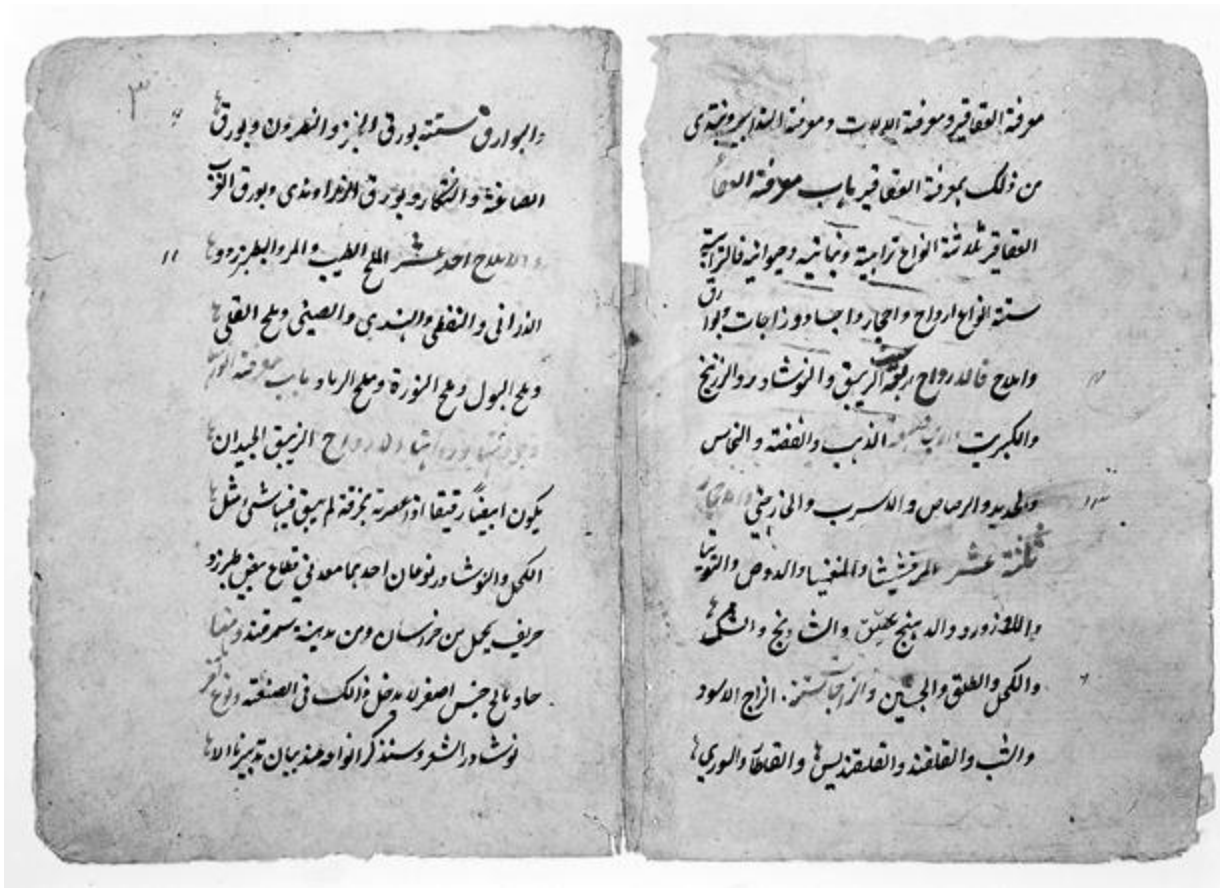 معرفة العقاقير ومعرفة الالات ومعرفة التدابير ونبتدى
من ذلك بمعرفة العقاقير باب معرفة العقا
العقاقير ثلاثة انواع ترابية ونباتية وحيوانية فالترابية
ستة انواع ارواح واحجار واجساد وزاجات وبوارق
واملاح فالارواح اربعة الزيبق والنوشادر والزرنيخ
والكبريت الذهب والفضة والنحاس
والحديد والرصاص والاسرب والخارصيني والاحجار
ثلثة عشر المرقشيشا والمغنيسا والدوص والتوتيا
واللازورد والدهنج والشادنج والشك
والكحل والطلق والجبسين والزاجات ستة الزاج الاسود
والشب والقلقند والقلقنديس والقلقطار والسوري
٣
والبوارق ستة بورق الخبز والنطرون وبورق
الصاغة والتنكار وبورق الزراوندى وبورق الغرب
والاملاح احد عشر الملح الطيب والمر والطبرزد
١١
الذرانى والنفطى والهندى والصينى وملح القلى
وملح البول وملح النورة وملح الرماد باب معرفة
الارواح الزيبق الجيد ان
يكون ابيضا رقيقا اذا عصرته بخرقة لم يبق فيها شئ مثل
الكحل والنوشادر نوعان احدهما معدنى قطاع بيض طبرزد
حريف يحمل من خراسان ومن مدينة سمرقند ومنها
جنس اصفر لا يدخل ذالك فى الصنعة ونوع
نوشادر الشعر وسنذكر انواعه عند بيان تدبيرنا